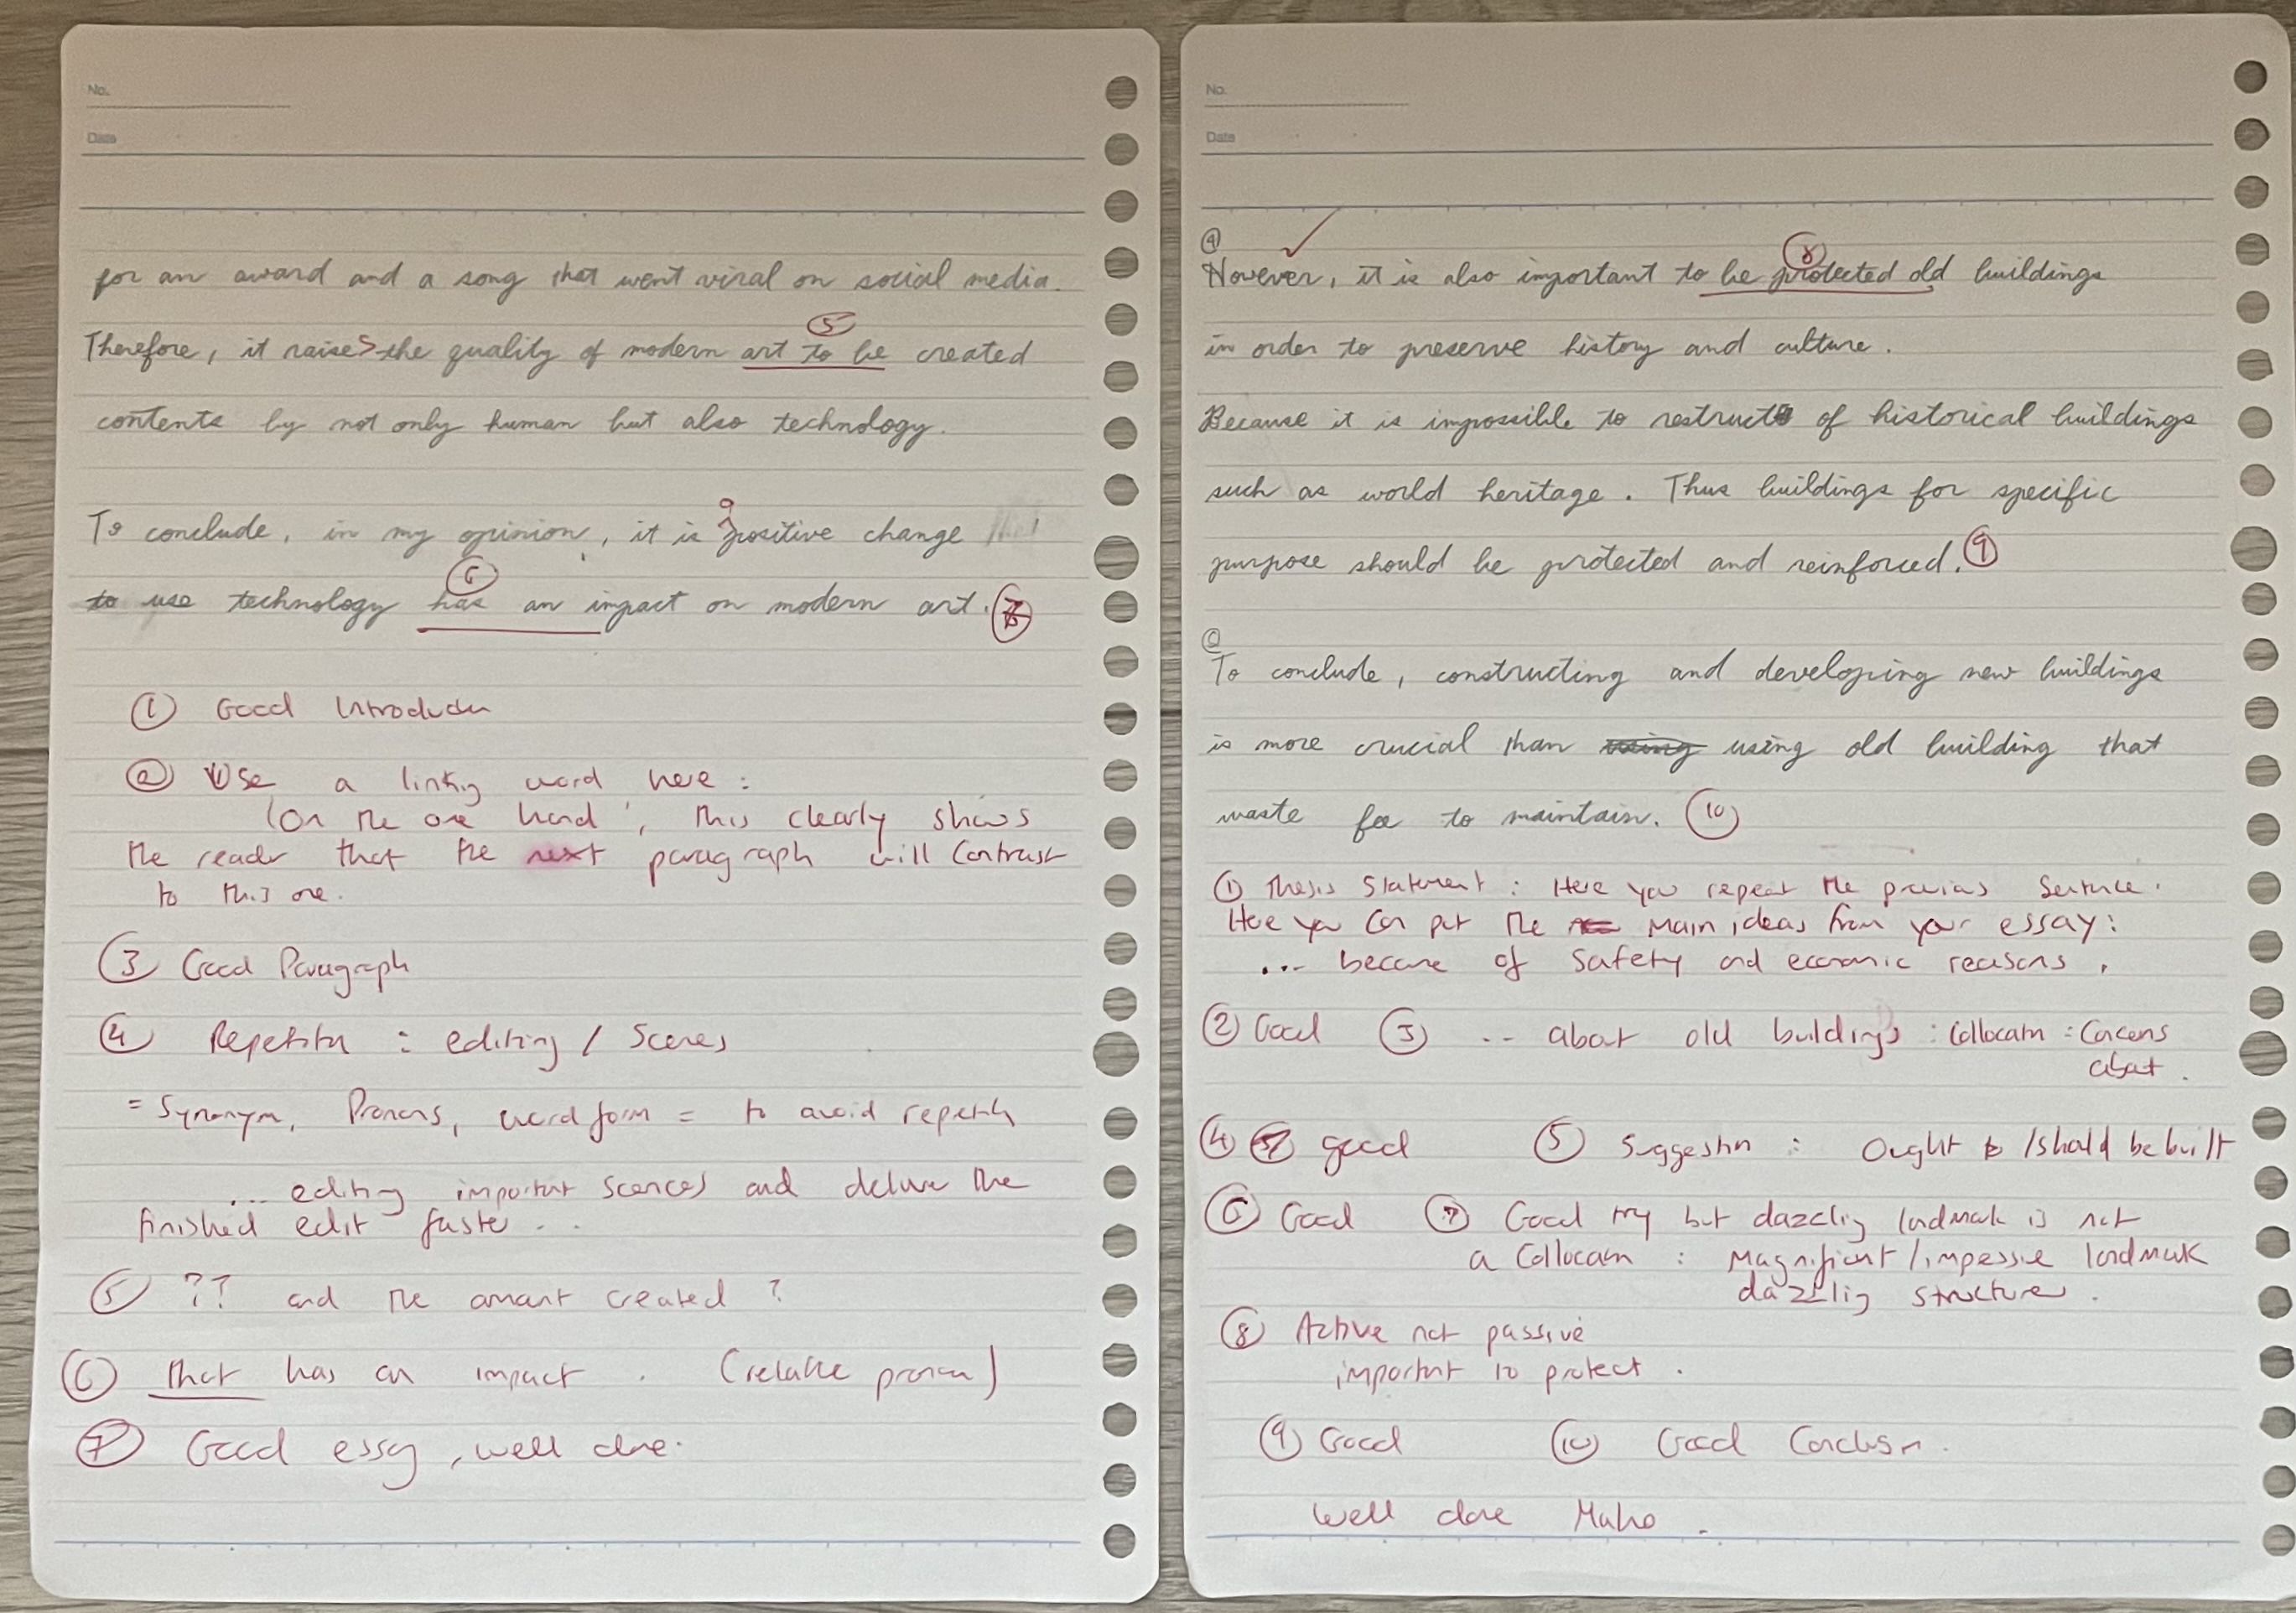 No.
Date
for an award and a song that went viral on social media.
⑤
Therefore, it raises the quality of modern art to be created
contents by not only human but also technology.
a
To conclude, in my opinion, it is positive change
⑥
to use technology has an impact on modern art. ⑦
① Good Introduction
② Use a linking word here :
'On the one hand', this clearly shows
the reader that the next paragraph will contrast
to this one.
③ Good Paragraph
④ Repetition : editing / scenes
= Synonym, Pronouns, word form = to avoid repetition
... editing important scences and deliver the
finished edit faster ...
⑤ ?? and the amount created ?
⑥ that has an impact . (relative pronoun)
⑦ Good essay, well done.
No.
Date
④ ✓ ⑧
However, it is also important to be protected old buildings
in order to preserve history and culture.
Because it is impossible to restruct of historical buildings
such as world heritage. Thus buildings for specific
purpose should be protected and reinforced. ⑨
To conclude, constructing and developing new buildings
is more crucial than using using old building that
waste fee to maintain. ⑩
① Thesis Statement : Here you repeat the previous sentence.
Here you can put the main ideas from your essay :
... because of safety and economic reasons .
② Good ③ ... about old buildings : Collocation : Concerns
about .
④ good ⑤ Suggestion : Ought to / should be built
⑥ Good ⑦ Good try but dazzling landmark is not
a Collocation : Magnificent / impressive landmark
dazzling structure .
⑧ Active not passive
important to protect .
⑨ Good ⑩ Good Conclusion .
Well done Maho .